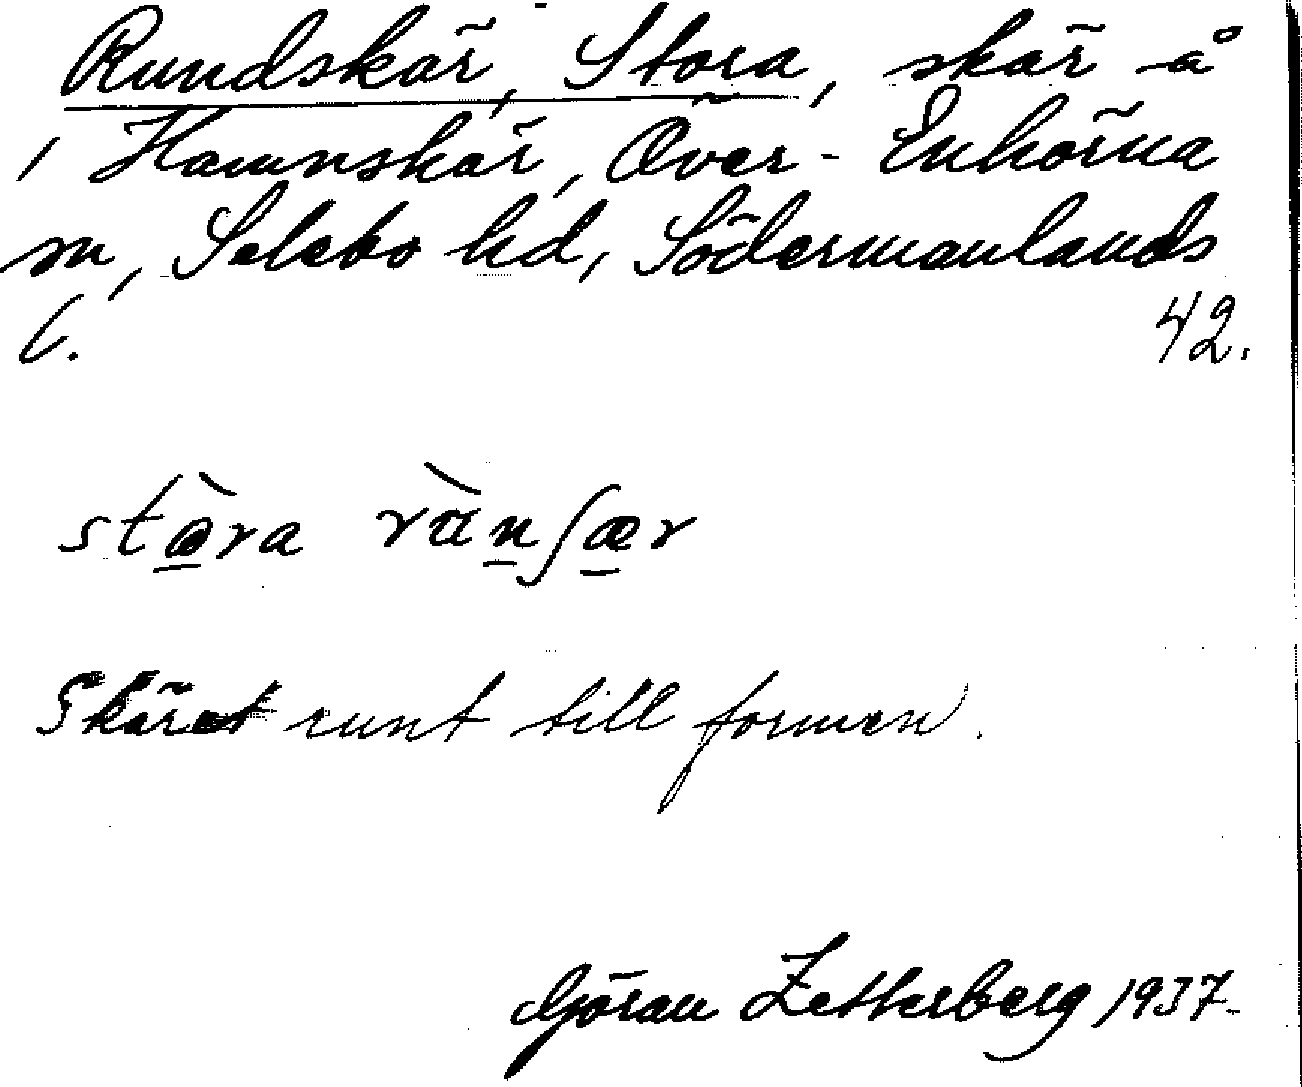 Rundskär, Stora, skär å
i Hamnskär, Över-Enhörna
sn, Selebo hd, Södermanlands
l. 42.
stɷ̀ra rɑ̀n̠ʃæ̠r
Skäret runt till formen.
Göran Zetterberg 1937-